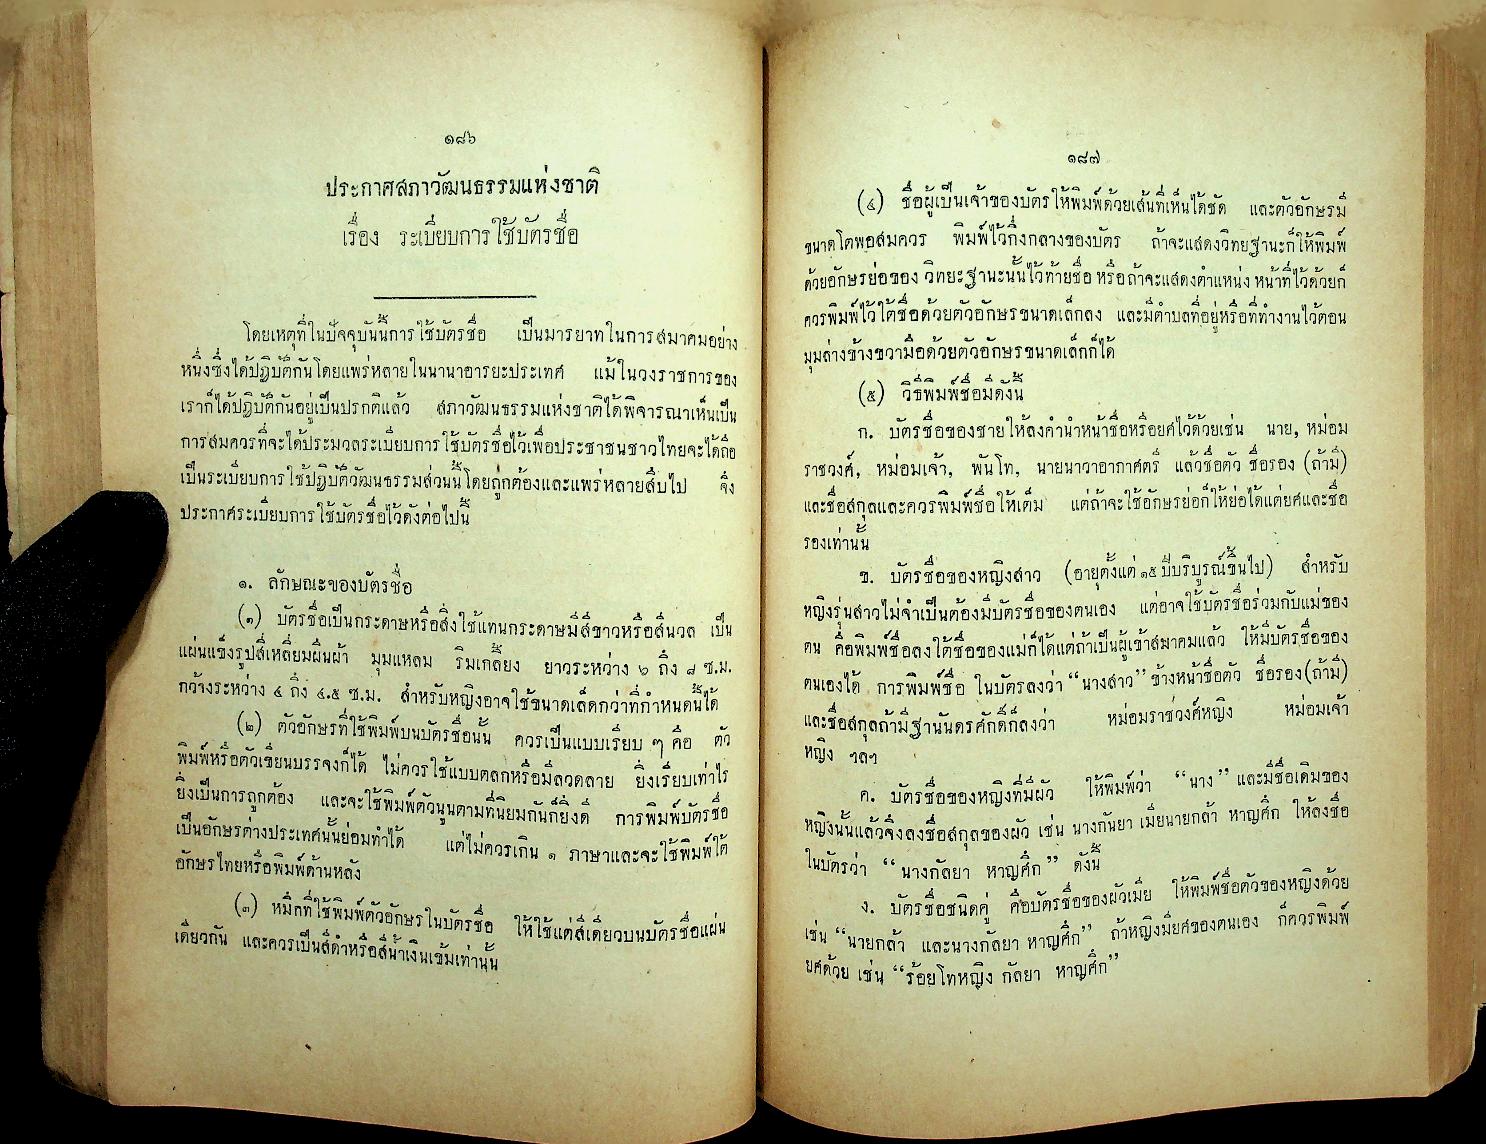 ๑๘๖
ประกาศสภาวัฒนธรรมแห่งชาติ
เรื่อง ระเบียบการใช้บัตรชื่อ
โดยเหตุที่ในปัจจุบันนี้การใช้บัตรชื่อ เป็นมารยาทในการสมาคมอย่าง
หนึ่งซึ่งได้ปฏิบัติกันโดยแพร่หลายในนานาอารยะประเทศ แม้ในวงราชการของ
เราก็ได้ปฏิบัติกันอยู่เป็นปรกติแล้ว สภาวัฒนธรรมแห่งชาติได้พิจารณาเห็นเป็น
การสมควรที่จะได้ประมวลระเบียบการใช้บัตรชื่อไว้เพื่อประชาชนชาวไทยจะได้ถือ
เป็นระเบียบการใช้ปฏิบัติวัฒนธรรมส่วนนี้โดยถูกต้องและแพร่หลายสืบไป จึง
ประกาศระเบียบการใช้บัตรชื่อไว้ดังต่อไปนี้
๑. ลักษณะของบัตรชื่อ
(๑) บัตรชื่อเป็นกระดาษหรือสิ่งใช้แทนกระดาษมีสีขาวหรือสีนวล เป็น
แผ่นแข็งรูปสี่เหลี่ยมผืนผ้า มุมแหลม ริมเกลี้ยง ยาวระหว่าง ๖ ถึง ๘ ซ.ม.
กว้างระหว่าง ๔ ถึง ๔.๕ ซ.ม. สำหรับหญิงอาจใช้ขนาดเล็ดกว่าที่กำหนดนี้ได้
(๒) ตัวอักษรที่ใช้พิมพ์บนบัตรชื่อนั้น ควรเป็นแบบเรียบ ๆ คือ ตัว
พิมพ์หรือตัวเขียนบรรจงก็ได้ ไม่ควรใช้แบบตลกหรือมีลวดลาย ยิ่งเรียบเท่าไร
ยิ่งเป็นการถูกต้อง และจะใช้พิมพ์ตัวนูนตามที่นิยมกันก็ยิ่งดี การพิมพ์บัตรชื่อ
เป็นอักษรต่างประเทศนั้นย่อมทำได้ แต่ไม่ควรเกิน ๑ ภาษาและจะใช้พิมพ์ใต้
อักษรไทยหรือพิมพ์ด้านหลัง
(๓) หมึกที่ใช้พิมพ์ตัวอักษรในบัตรชื่อ ให้ใช้แต่สีเดียวบนบัตรชื่อแผ่น
เดียวกัน และควรเป็นสีดำหรือสีน้ำเงินเข้มเท่านั้น
๑๘๗
(๔) ชื่อผู้เป็นเจ้าของบัตรให้พิมพ์ด้วยเส้นที่เห็นได้ชัด และตัวอักษรมี
ขนาดโตพอสมควร พิมพ์ไว้กึ่งกลางของบัตร ถ้าจะแสดงวิทยฐานะก็ให้พิมพ์
ด้วยอักษรย่อของวิทยะฐานะนั้นไว้ท้ายชื่อ หรือถ้าจะแสดงตำแหน่ง หน้าที่ไว้ด้วยก็
ควรพิมพ์ไว้ใต้ชื่อด้วยตัวอักษรขนาดเล็กลง และมีตำบลที่อยู่หรือที่ทำงานไว้ตอน
มุมล่างข้างขวามือด้วยตัวอักษรขนาดเล็กก็ได้
(๕) วิธีพิมพ์ชื่อมีดังนี้
ก. บัตรชื่อของชายให้ลงคำนำหน้าชื่อหรือยศไว้ด้วยเช่น นาย, หม่อม
ราชวงศ์, หม่อมเจ้า, พันโท, นายนาวาอากาศตรี แล้วชื่อตัว ชื่อรอง (ถ้ามี)
และชื่อสกุลและควรพิมพ์ชื่อให้เต็ม แต่ถ้าจะใช้อักษรย่อก็ให้ย่อได้แต่ยศและชื่อ
รองเท่านั้น
ข. บัตรชื่อของหญิงสาว (อายุตั้งแต่ ๑๕ ปีบริบูรณ์ขึ้นไป) สำหรับ
หญิงรุ่นสาวไม่จำเป็นต้องมีบัตรชื่อของตนเอง แต่อาจใช้บัตรชื่อร่วมกับแม่ของ
ตน คือพิมพ์ชื่อลงใต้ชื่อของแม่ก็ได้แต่ถ้าเป็นผู้เข้าสมาคมแล้ว ให้มีบัตรชื่อของ
ตนเองได้ การพิมพ์ชื่อ ในบัตรลงว่า “นางสาว” ข้างหน้าชื่อตัว ชื่อรอง(ถ้ามี)
และชื่อสกุลถ้ามีฐานันดรศักดิ์ก็ลงว่า หม่อมราชวงศ์หญิง หม่อมเจ้า
หญิง ฯลฯ
ค. บัตรชื่อของหญิงที่มีผัว ให้พิมพ์ว่า “นาง” และมีชื่อเดิมของ
หญิงนั้นแล้วจึงลงชื่อสกุลของผัว เช่น นางกันยา เมียนายกล้า หาญศึก ให้ลงชื่อ
ในบัตรว่า “นางกัลยา หาญศึก” ดังนี้
ง. บัตรชื่อชนิดคู่ คือบัตรชื่อของผัวเมีย ให้พิมพ์ชื่อตัวของหญิงด้วย
เช่น “นายกล้า และนางกัลยา หาญศึก” ถ้าหญิงมียศของตนเอง ก็ควรพิมพ์
ยศด้วย เช่น “ร้อยโทหญิง กัลยา หาญศึก”